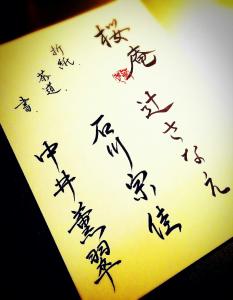 桜庵
辻さなえ
石川宗佳
中井薫翠
折紙.
茶道.
書.